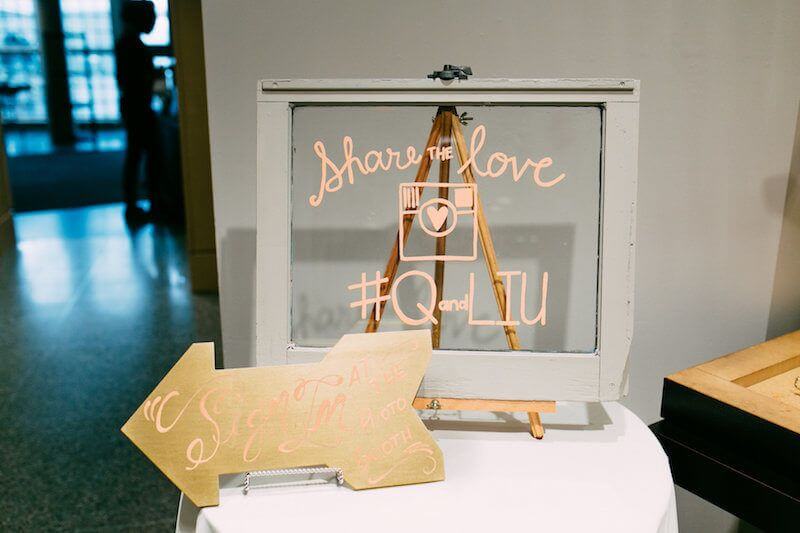 Share THE love
#QandLIU
Sign In
AT THE
PHOTO
BOOTH